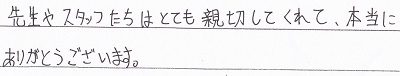 先生やスタッフたちはとても親切してくれて、本当に
ありがとうございます。